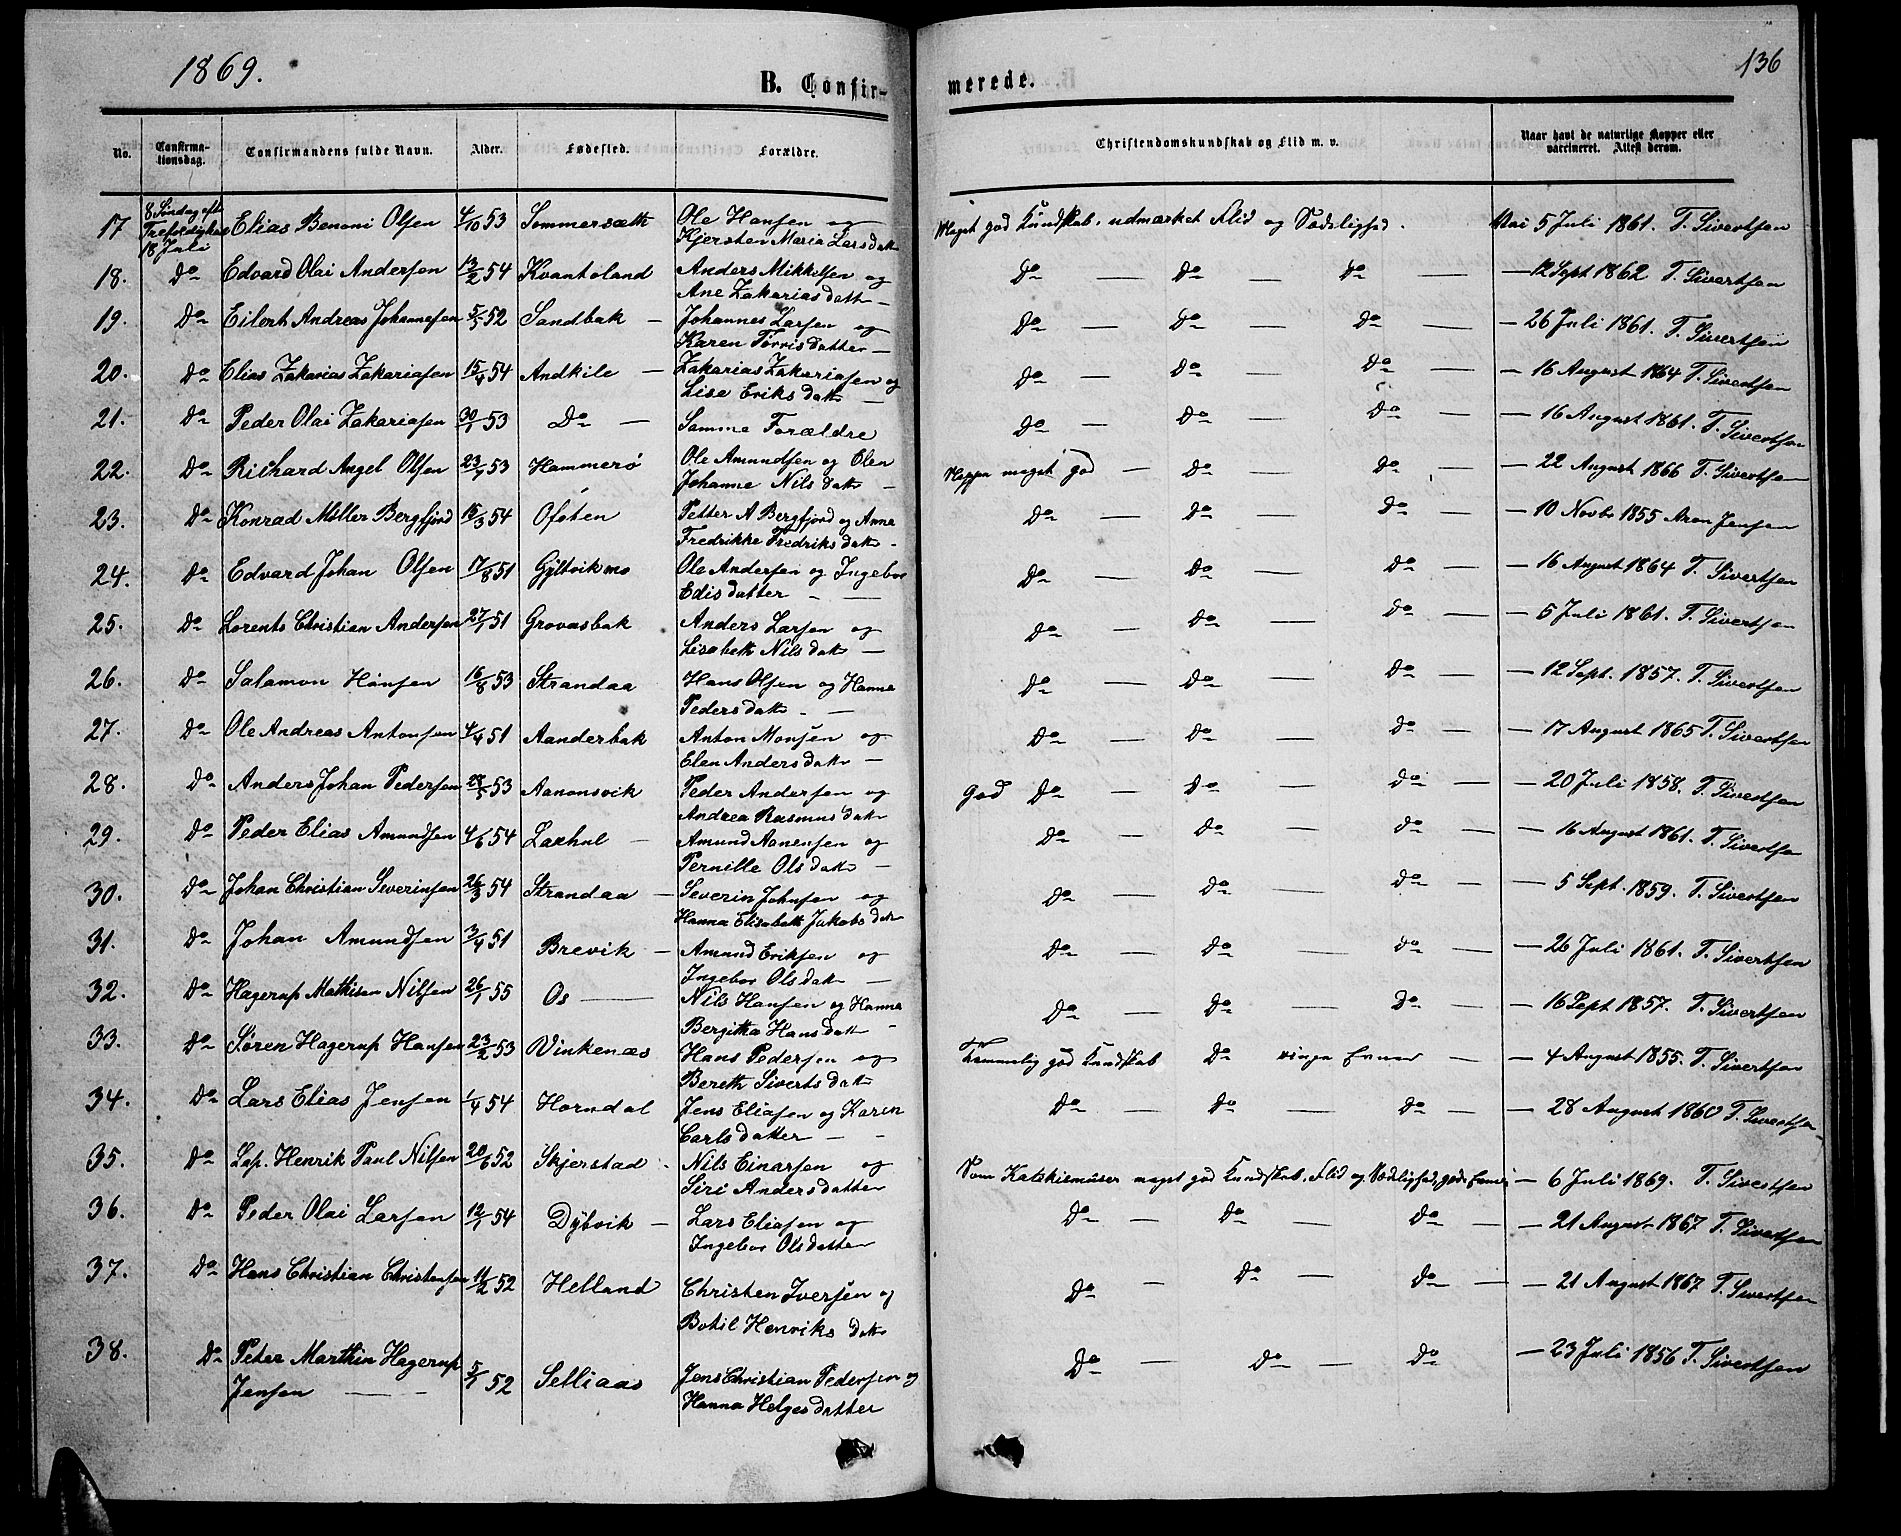 1869.
B. Confir-
merede.
136
No.
Confirma-
tionsdag.
Confirmandens fulde Navn.
Alder.
Fødested.
Forældre.
Christendomskundskab og Flid m. v.
Naar havt de naturlige Kopper eller
vaccineret. Attest derom.
8 Søndag eft
Trefoldighed
18 Juli
17 Elias Benoni Olsen 4/10 53 Sommersæth Ole Hansen og
Kjersten Maria Larsdatt
Meget god Kundskab, udmærket Flid og Sædelighed. Vac 5 Juli 1861. T. Sivertsen
18. Do Edvard Olai Andersen 13/2 54 Kvantoland Anders Mikkelsen og
Ane Zakariasdatt —
Do — Do — Do — — 12 Sept 1862 T. Sivertsen
19. Do Eilert Andreas Johannesen 5/5 52 Sandbak — Johannes Larsen og
Karen Torrisdatter —
Do — Do — Do — — 26 Juli 1861. T. Sivertsen
20. Do Elias Zakarias Zakariasen 15/4 54 Andkile — Zakarias Zakariasen og
Lise Eriksdatt —
Do — Do — Do — — 16 August 1864 T. Sivertsen
21. Do Peder Olai Zakariasen 30/1 53 Do — Samme Forældre
Do — Do — Do — — 16 August 1861. T. Sivertsen
22. Do Richard Angel Olsen 23/7 53 Hammerø Ole Amundsen og Elen
Johanne Nilsdatt —
meget god — Do — Do — — 22 August 1866 T. Sivertsen
23. Do Konrad Møller Bergfjord 16/3 54 Ofoten Petter A Bergfjord og Anne
Fredrikke Fredriksdatt -
Do — Do — Do — — 10 Novbr 1855 Aron Jensen
24. Do Edvard Johan Olsen 17/8 51 Gyltvikmo Ole Andersen og Ingebor
Edisdatter - —
Do — Do — Do — — 16 August 1864 T. Sivertsen
25. Do Lorents Christian Andersen 27/1 51 Grovasbak Anders Larsen og
Lisabeth Nilsdatt —
Do — Do — Do — — 5 Juli 1861. T. Sivertsen
26. Do Salamon Hansen 16/8 53 Strandaa Hans Olsen og Hanna
Pedersdatt - —
Do — Do — Do — — 12 Sept. 1857. T. Sivertsen
27. Do Ole Andreas Antonsen 4/4 51 Aanderbak Anton Monsen og
Elen Andersdatt —
Do — Do — Do — — 17 August 1865 T. Sivertsen
28. Do Anders Johan Pedersen 28/5 53 Aanonsvik Peder Andersen og
Andrea Rasmusdatt
God Do — Do — Do — — 20 Juli 1858. T. Sivertsen
29. Do Peder Elias Amundsen 4/6 54 Laxhul — Amund Aanensen og
Pernille Olsdatt —
Do — Do — Do — — 16 August 1861. T. Sivertsen
30. Do Johan Christian Severinsen 26/3 54 Strandaa — Severin Johnsen og
Hanna Elisabeth Jakobsdatt
Do — Do — Do — — 5 Sept. 1859. T. Sivertsen
31. Do Johan Amundsen 3/4 51 Brevik — Amund Eriksen og
Ingebor Olsdatt —
Do — Do — Do — — 26 Juli 1861. T. Sivertsen
32. Do Hagerup Mathisen Nilsen 26/1 55 Os — Nils Hansen og Hanna
Bergitha Hansdatt -
Do — Do — Do — — 16 Sept 1857. T. Sivertsen
33. Do Søren Hagerup Hansen 23/2 53 Vinkenæs Hans Pedersen og
Bereth Sivertsdatt
Temmelig god Kundskab Do ringe Evner — — 4 August 1855. T. Sivertsen
34. Do Lars Elias Jensen 1/4 54 Horndal Jens Eliasen og Karen
Carlsdatter — -
Do — Do — Do — — 28 August 1860 T. Sivertsen
35. Do Lap. Henrik Paul Nilsen 20/6 52 Skjerstad - Nils Einarsen og
Siri Andersdatter
Som Katekismuser meget god Kundskab, Flid og Sædelighed, gode Evner — 6 Juli 1869. T. Sivertsen
36. Do Peder Olai Larsen 12/1 54 Dybvik — Lars Eliasen og
Ingebor Olsdatter
Do — Do — Do — — 21 August 1867 T. Sivertsen
37. Do Hans Christian Christensen 11/2 52 Helland Christen Iversen og
Botil Henriksdatt
Do — Do — Do — — 21 August 1867 T. Sivertsen
38. Do Peter Marthin Hagerup
Jensen — - 5/1 52 Setliaas Jens Christian Pedersen og
Hanna Helgesdatter
Do — Do — Do — 23 Juli 1856 T. Sivertsen